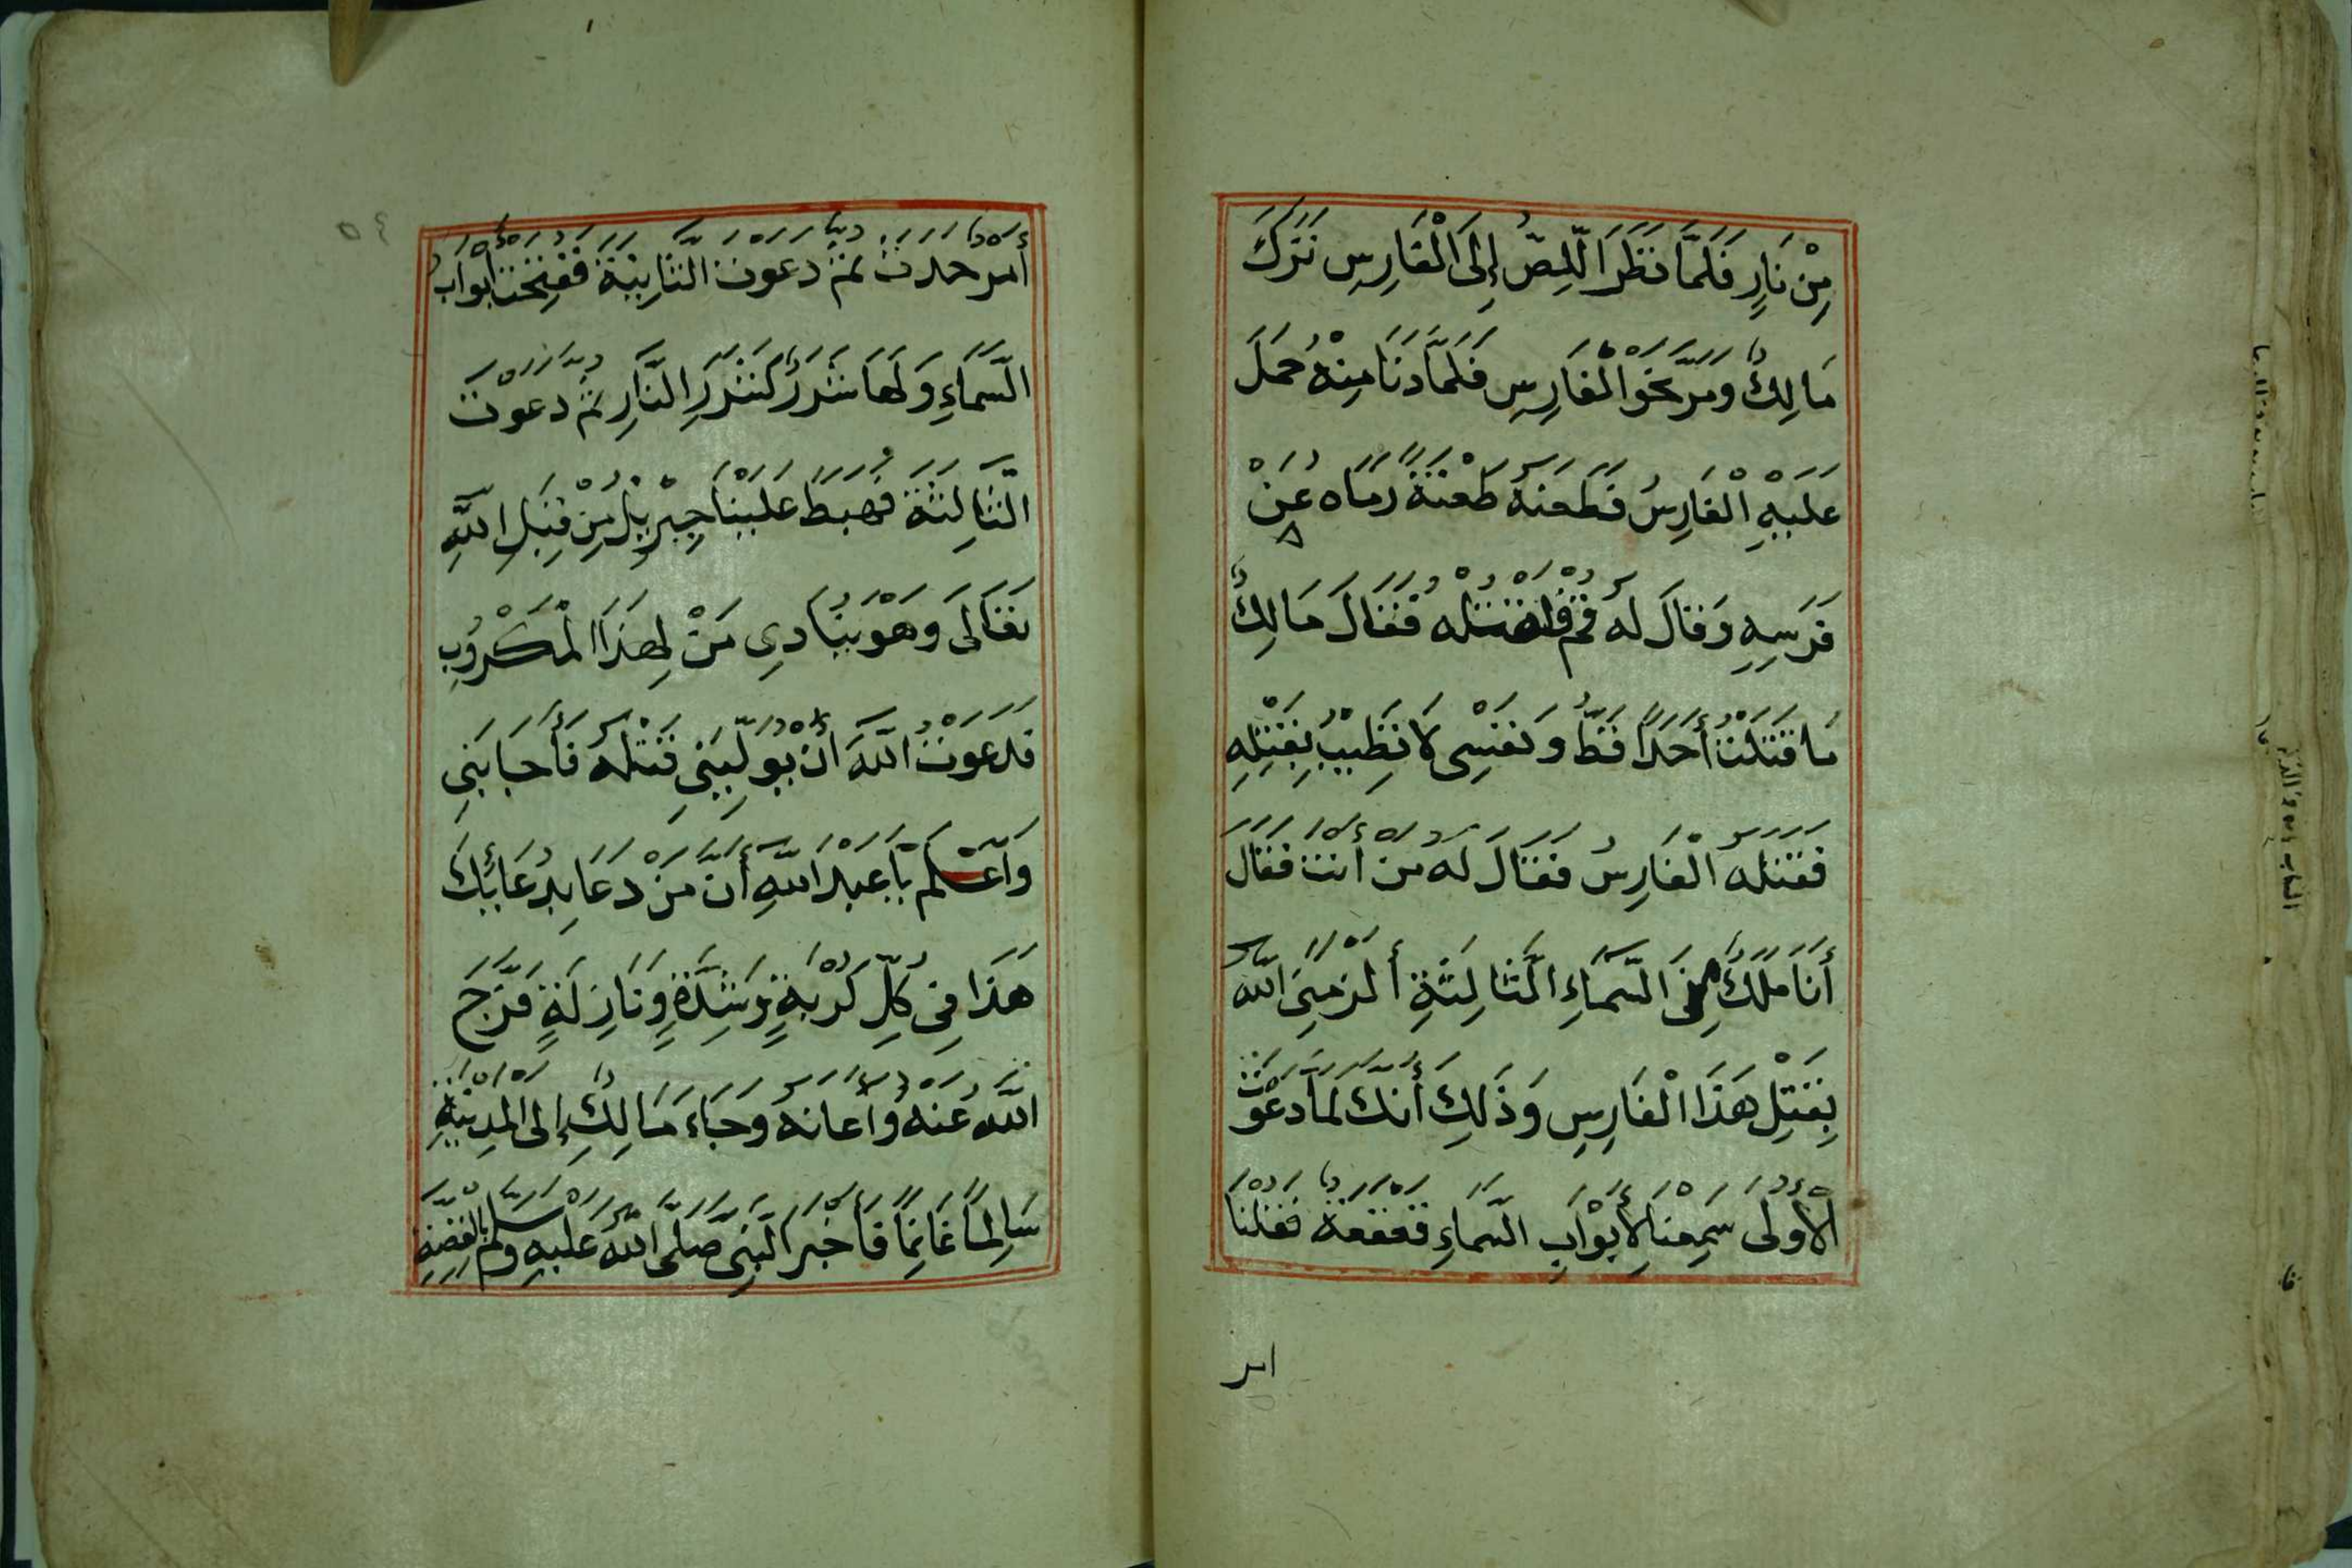 مِنْ نَارٍ فَلَمَّا نَظَرَ اللِّصُّ إِلَى الْفَارِسِ تَرَكَ
مَالِكٌ وَمَرَّ نَحْوَ الْفَارِسِ فَلَمَّا دَنَا مِنْهُ حَمَلَ
عَلَيْهِ الْفَارِسُ فَطَعَنَهُ طَعْنَةً رَمَاه عَنْ
فَرَسِهِ وَقَالَ لَهُ قُمْ فَاقْتُلْهُ فَقَالَ مَالِكٌ
مَا قَتَلْتُ أَحَدًا قَطُّ وَنَفْسِى لَا تَطِيْبُ بِقَتْلِهِ
فَقَتَلَهُ الْفَارِسُ فَقَالَ لَهُ مَنْ أَنْتَ فَقَالَ
أَنَا مَلَكٌ مِنَ السَّمَاءِ الثَّالِثَةِ أَلْزَمَنِىَ اللَّهُ
بِقَتْلِ هَذَا الْفَارِسِ وَذَلِكَ أَنَّكَ لَمَّا دَعَوْتَ
الْأُوْلَى سَمِعْنَا لِأَبْوَابِ السَّمَاءِ قَعْقَعَةً فَقُلْنَا
امر
٥٤
أَمْرٌ حَدَثَ ثُمَّ دَعَوْتَ الثَّانِيَةَ فَفُتِحَتْ أَبْوَابُ
السَّمَاءِ وَلَهَا شَرَرٌ كَشَرَرِ النَّارِ ثُمَّ دَعَوْتَ
الثَّالِثَةَ فَهَبَطَ عَلَيْنَا جِبْرِيْلُ مِنْ قِبَلِ اللَّهِ
تَعَالَى وَهَوْ يُنَادِى مَنْ لِهَذَا الْمَكْرُوْبِ
فَدَعَوْتُ اللَّهَ أَنْ يُوَلِّيَنِي قَتْلَهُ فَأَجَابَنِي
وَاعْلَمْ يَا عَبْدَ اللَّهِ أَنَّ مَنْ دَعَا بِدُعَائِكَ
هَذَا فِي كُلِّ كُرْبَةٍ وَشِدَّةٍ وَنَازِلَةٍ فَرَّجَ
اللَّهُ عَنْهُ وَأَعَانَهُ وَجَاءَ مَالِكٌ إِلَى الْمَدِيْنَةِ
سَالِمًا غَانِمًا فَأَخْبَرَ النَّبِيَّ صَلَّى اللَّهُ عَلَيْهِ وَسَلَّمْ بِالْقِصَّةِ